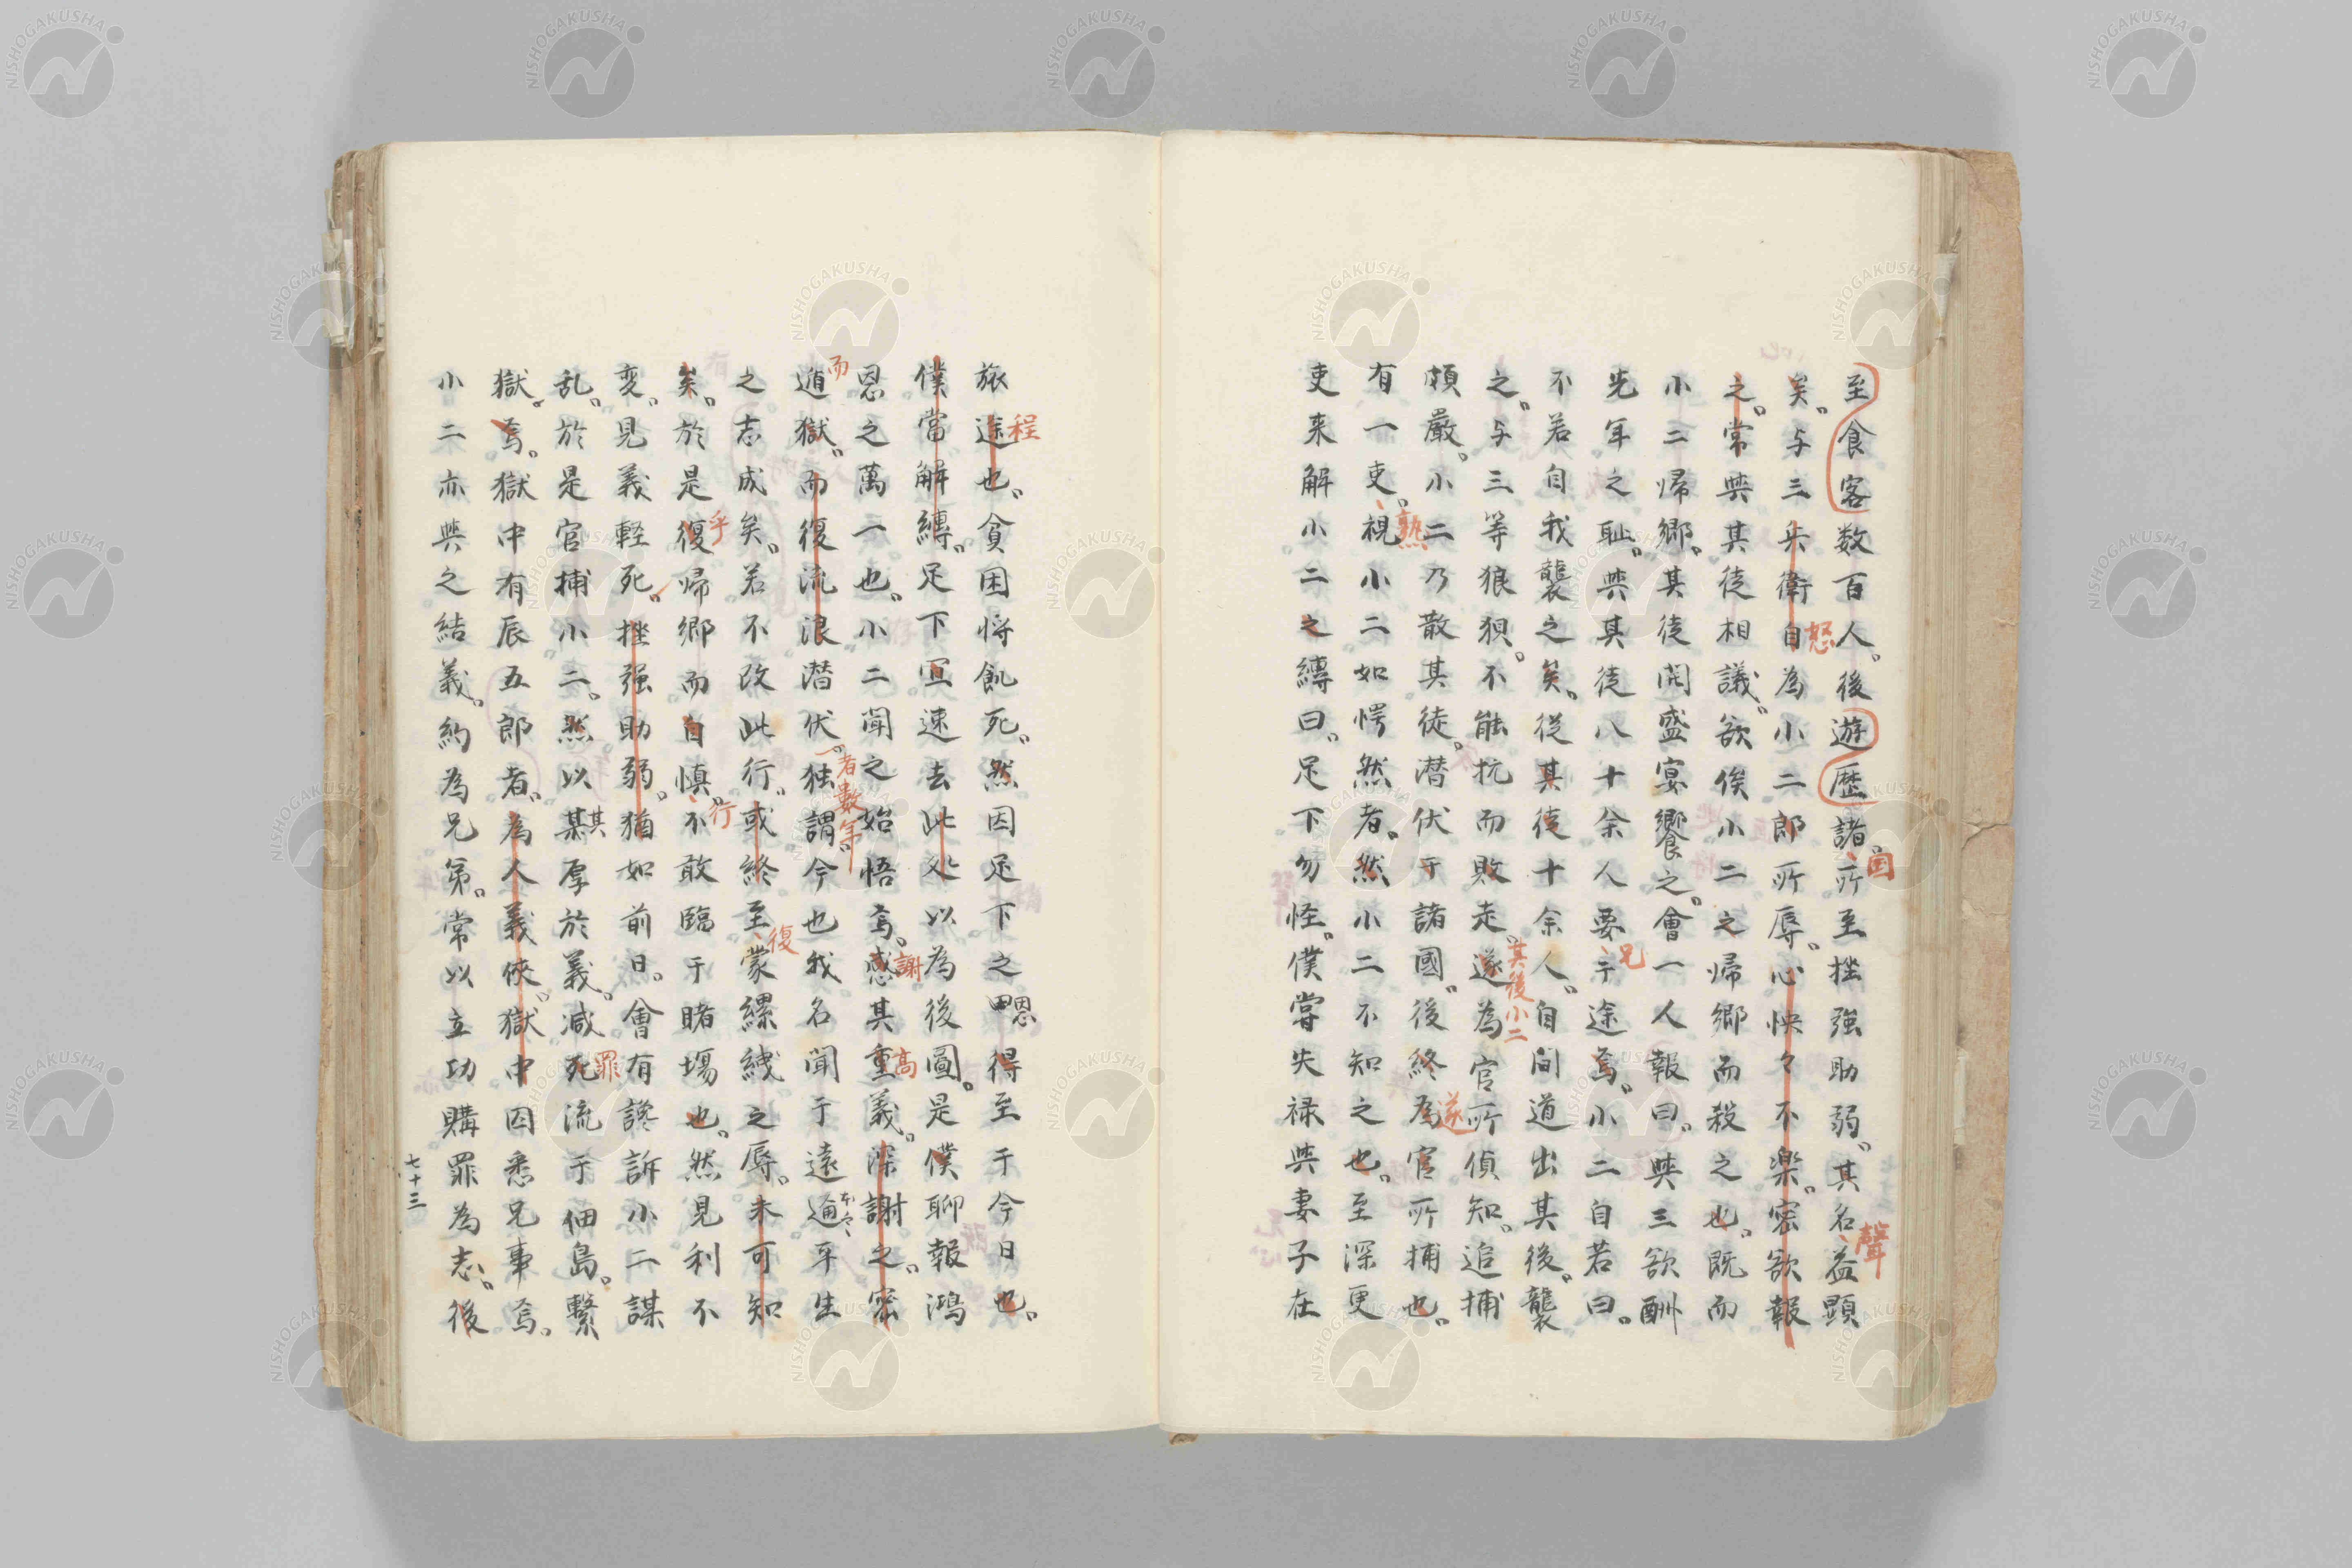 至食客数百人。後遊歴諸所至挫強助弱。其名益顕
矣。与三兵衛自為小二郎所辱。心怏々不楽。密欲報
之。常與其徒相議。欲俟小二之帰郷而殺之也。既而
小二帰郷。其徒開盛宴饗之。會一人報曰。與三欲酬
先年之恥。與其徒八十余人要于途焉。小二自若曰。
不若自我襲之矣。從其徒十余人。自間道出其後。襲
之。与三等狼狽。不能抗而敗走。遂為官所偵知。追捕
頗嚴。小二乃散其徒。潜伏于諸國。後終為官所捕也。
有一吏。視小二如愕然者。然小二不知之也。至深更
吏来解小二之縛曰。足下勿怪。僕嘗失禄與妻子在
旅途也。貧困将飢死。然因足下之恩得至于今日也。
僕當解縛。足下宜速去此処以為後圖。是僕聊報鴻
恩之萬一也。小二聞之始悟焉。感其重義。深謝之。密
遁獄。而復流浪潜伏。独謂。今也我名聞于遠通平生
之志成矣。若不改此行。或終至蒙縲絏之辱。未可知
矣。於是復帰郷而自慎。不敢臨于賭場也。然見利不
変。見義軽死。挫强助弱。猶如前日。會有讒訴小二謀
乱。於是官捕小二。然以某厚於義。减死流于佃島。繋
獄焉。獄中有辰五郎者。為人義侠。獄中囚悉兄事焉。
小二亦與之結義。約為兄第。常以立功購罪為志。後
七十三
因
聲
怒
兄
其後小二
遂
熟
程
恩
謝
高
而
者數年
復
乎
行
罪
其